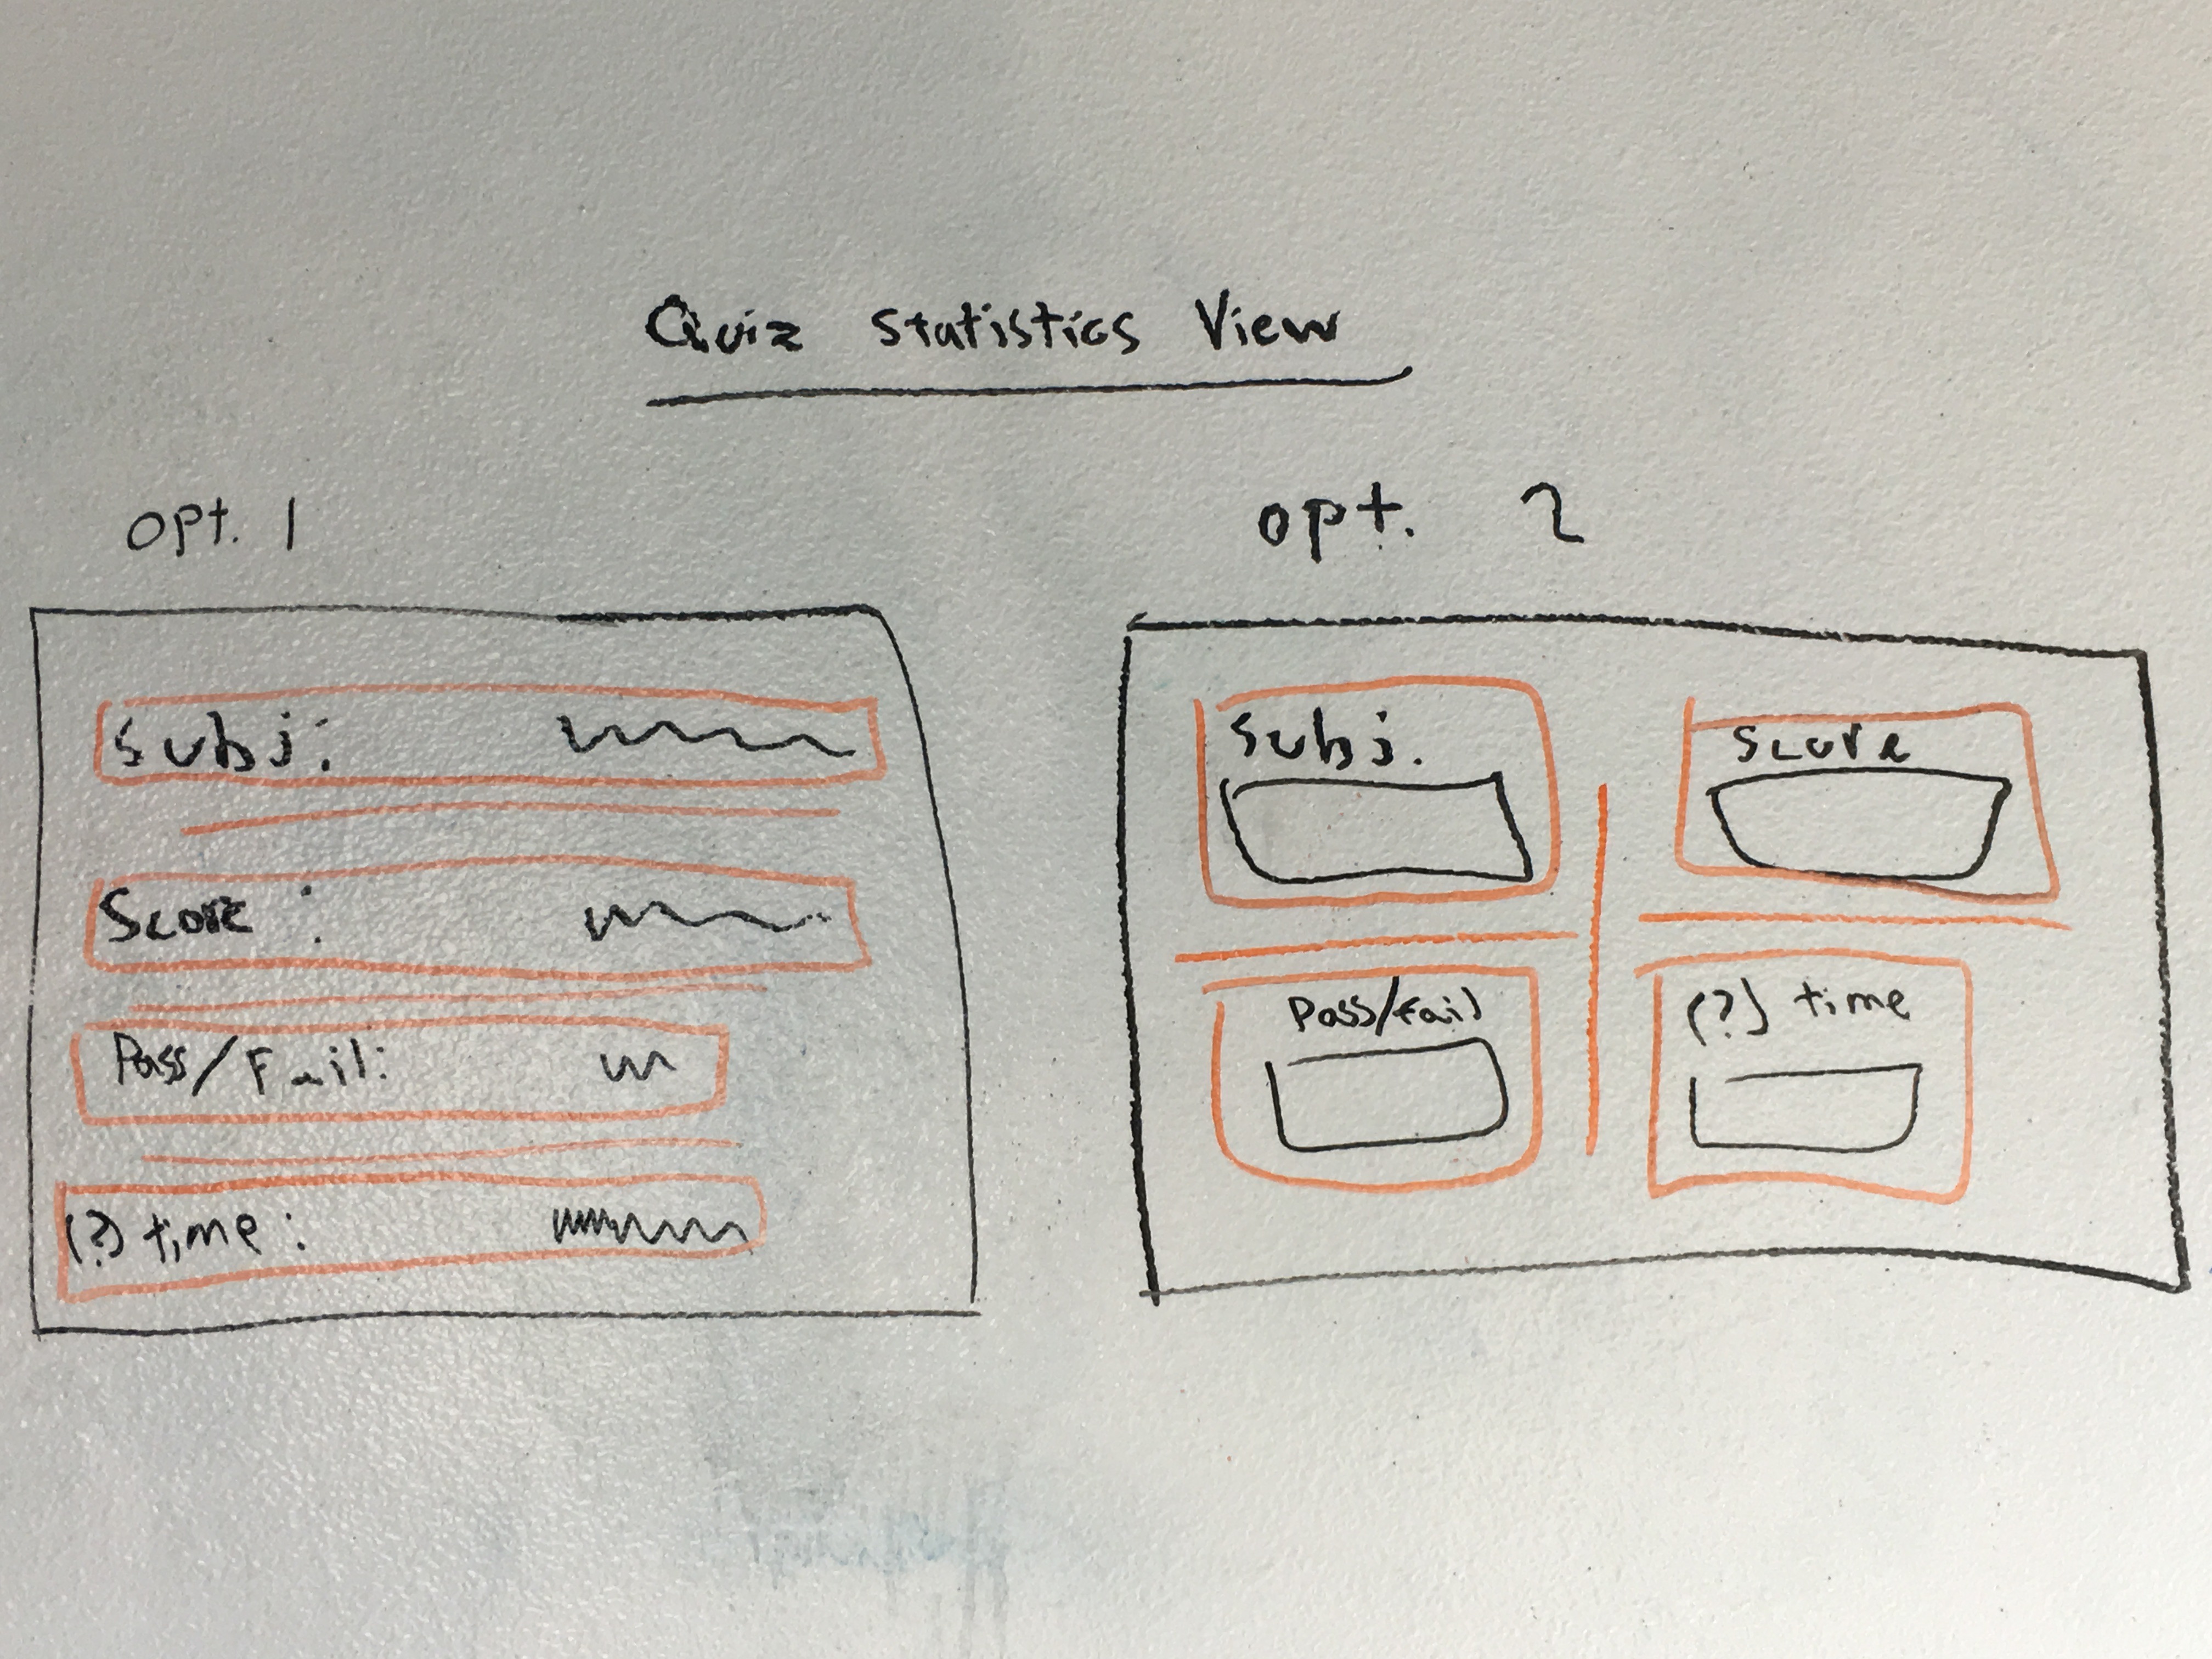 Quiz Statistics View
opt. 1
Subj:
Score :
Pass/Fail:
(?) time:
opt. 2
Subj.
Score
Pass/Fail
(?) time